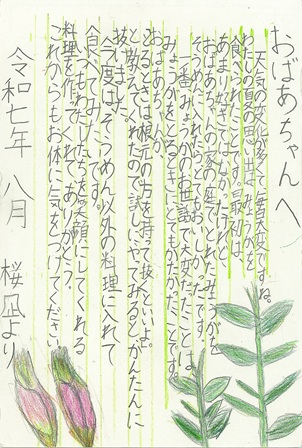 おばあちゃんへ
天気の変化が多くて毎日大変ですね。
わたしの夏の思い出は、みょうがを
食べられたことです。最初は、
あまり好きではなかったけれど
おばあちゃんの家の庭でとれたみょうがを
そうめんに入れて食べておいしかったです。
一番みょうがのお世話で大変だったことは、
みょうがをとるときにとてもかたかったことです。
おばあちゃんが、
「とるときは根元の方を持って抜くといいよ。」
と教えてくれたので試しにやってみるとかんたんに
抜けました。
今度は、そうめん以外の料理に入れて
食べてみたいです。
いつもわたしたちを笑顔にしてくれる
料理を作ってくれてありがとう。
これからもお体に気をつけてください。
令和七年 八月 桜凪より